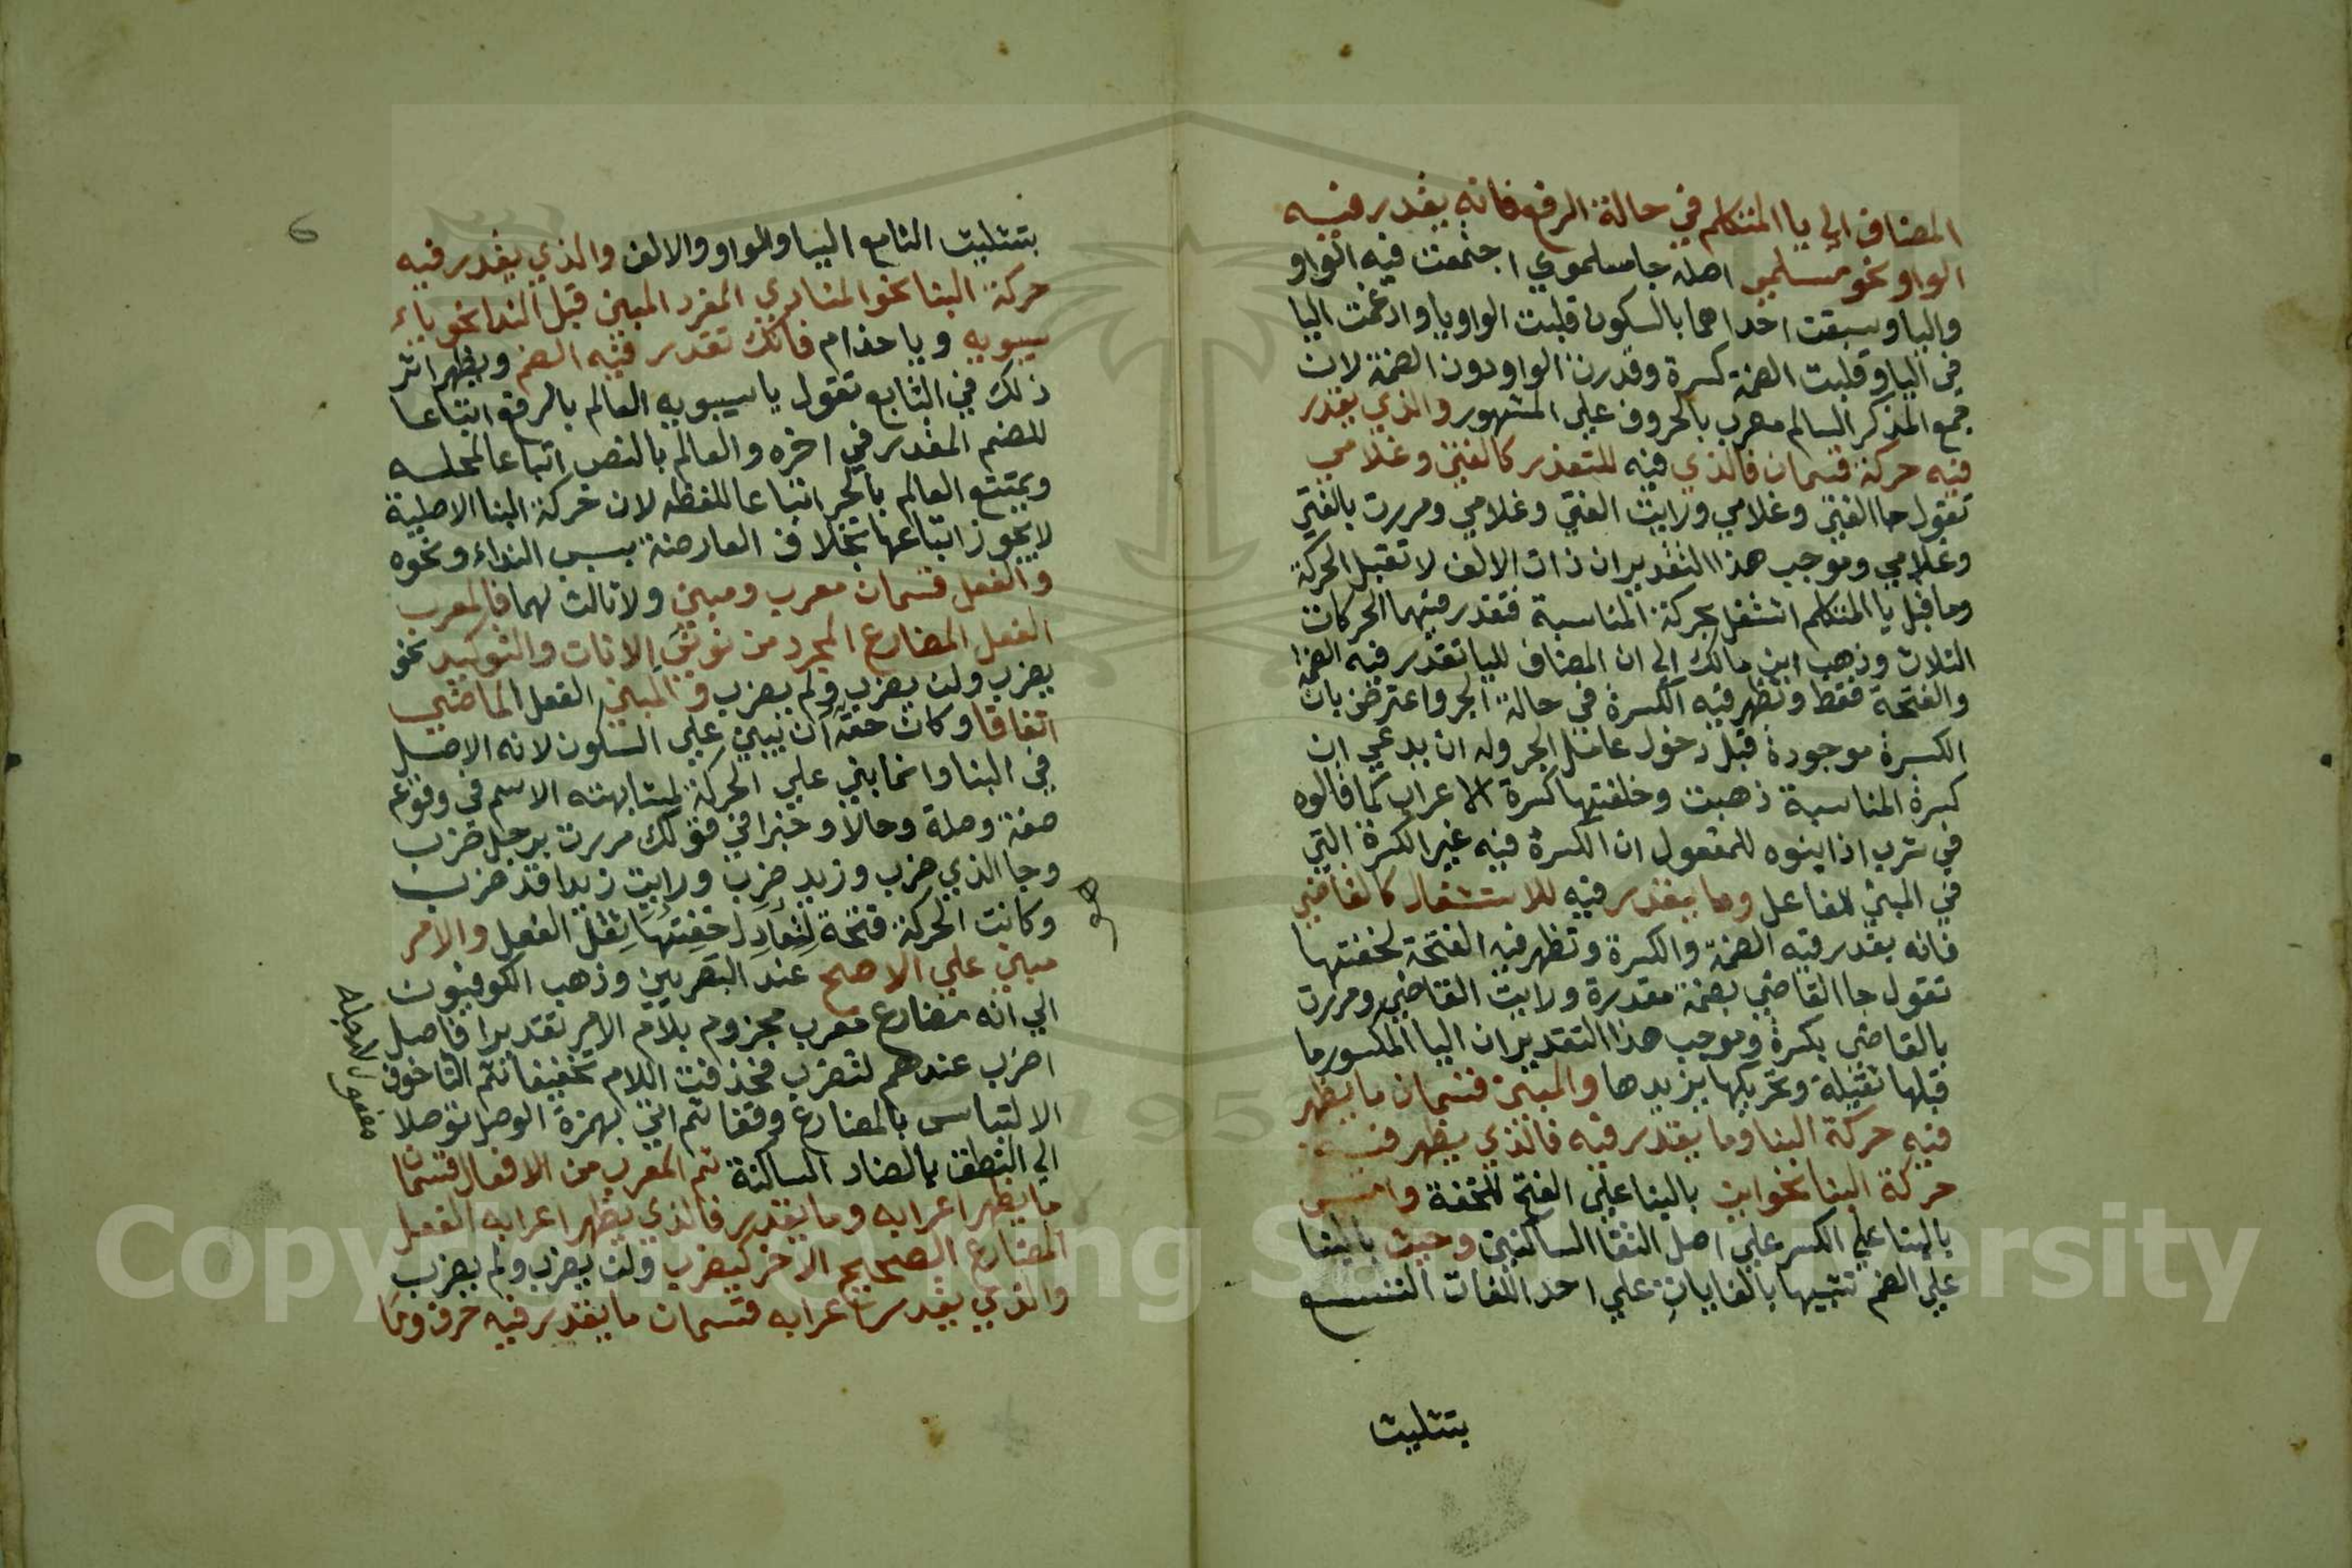 المضاف الي يا المتكلم في حالة الرفع فانه يقدر فيه
الواو نحو مسلمي اصله جا مسلموي اجتمعت فيه الواو
واليا وسبقت احداهما بالسكون قلبت الواو يا وادغمت اليا
في اليا وقلبت الضمة كسرة وقدرت الواو دون الضمة لان
جمع المذكر السالم معرب بالحروف علي المشهور والذي يقدر
فيه حركة قسمان فالذي فيه للتعذر كالفتي وغلامي
تقول جا الفتي وغلامي ورايت الفتي وغلامي ومررت بالفتي
وغلامي وموجب هذا التقدير ان ذات الالف لا تقبل الحركة
وما قبل يا المتكلم اشتغل بحركة المناسبة فتقدر فيهما الحركات
الثلاث وذهب ابن مالك الي ان المضاف لليا تقدر فيه الضمة
والفتحة فقط وتظهر فيه الكسرة في حالة الجر واعترض بان
الكسرة موجودة قبل دخول عامل الجر وله ان يدعي ان
كسرة المناسبة ذهبت وخلفتها كسرة الاعراب كما قالوه
في شرب اذا بنوه للمفعول ان الكسرة فيه غير الكسرة التي
في المبني للفاعل وما يقدر فيه للاستثقال كالقاضي
فانه يقدر فيه الضمة والكسرة وتظهر فيه الفتحة لخفتها
تقول جا القاضي بضمة مقدرة ورايت القاضي ومررت
بالقاضي بكسرة وموجب هذا التقدير ان اليا المكسور ما
قبلها ثقيلة وتحريكها يزيدها والمبني قسمان ما يظهر
فيه حركة البنا وما يقدر فيه فالذي يظهر فيه
حركة البنا نحو اين بالبنا علي الفتح للخفة وامس
بالبنا علي الكسر علي اصل التقا الساكنين وحيث بالبنا
علي الضم تشبيها بالغايات علي احد اللغات التسع
بتثليث
6
بتثليث الثامع اليا والواو والالف والذي يقدر فيه
حركة البنا نحو المنادي المفرد المبني قبل الندا نحو ياء
سيبويه ويا حذام فانك تقدر فيه الضم ويظهر اثر
ذلك في التابع تقول يا سيبويه العالم بالرفع اتباعا
للضم المقدر في اخره والعالم بالنصب اتباعا لمحله
ويمتنع العالم بالجر اتباعا للفظه لان حركة البنا الاصلية
لا يجوز اتباعها بخلاف العارضة بسبب النداء ونحوه
والفعل قسمان معرب ومبني ولا ثالث لهما فالمعرب
الفعل المضارع المجرد من نوني الاناث والتوكيد نحو
يضرب ولن يضرب ولم يضرب والمبني الفعل الماضي
اتفاقا وكان حقه ان يبني علي السكون لانه الاصل
في البنا وانما بني علي الحركة لمشابهته الاسم في وقوعه
صفة وصلة وحالا وخبرا في قولك مررت برجل ضرب
وجا الذي ضرب وزيد ضرب ورايت زيدا قد ضرب
وكانت الحركة فتحة لتعادل خفتها ثقل الفعل والامر
مبني علي الاصح عند البصريين وذهب الكوفيون
الي انه مضارع معرب مجزوم بلام الامر تقديرا فاصل
اضرب عندهم لتضرب فحذفت اللام تخفيفا ثم التا خوف
الالتباس بالمضارع وقفا ثم اتي بهمزة الوصل توصلا
الي النطق بالضاد الساكنة ثم المعرب من الافعال قسمان
ما يظهر اعرابه وما يقدر فالذي يظهر اعرابه الفعل
المضارع الصحيح الاخر كيضرب ولن يضرب ولم يضرب
والذي يقدر اعرابه قسمان ما يقدر فيه حرف وما
Copyright © King Saud University